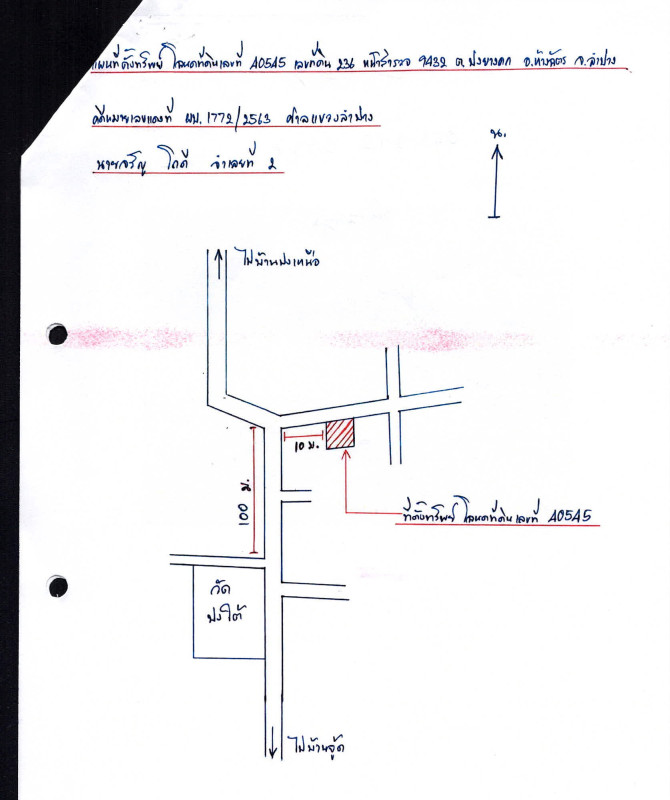 แผนที่ตั้งทรัพย์ โฉนดที่ดินเลขที่ 40545 เลขที่ดิน 236 หน้าสำรวจ 9432 ต.ปงยางคก อ.ห้างฉัตร จ.ลำปาง
คดีหมายเลขแดงที่ ผบ.1772/2563 ศาลแขวงลำปาง
นายจรัญ โกดี จำเลยที่ 2
น.
ไปบ้านปงเหนือ
10 ม.
100 ม.
ที่ตั้งทรัพย์ โฉนดที่ดินเลขที่ 40545
วัด
ปงใต้
ไปบ้านจู้ด